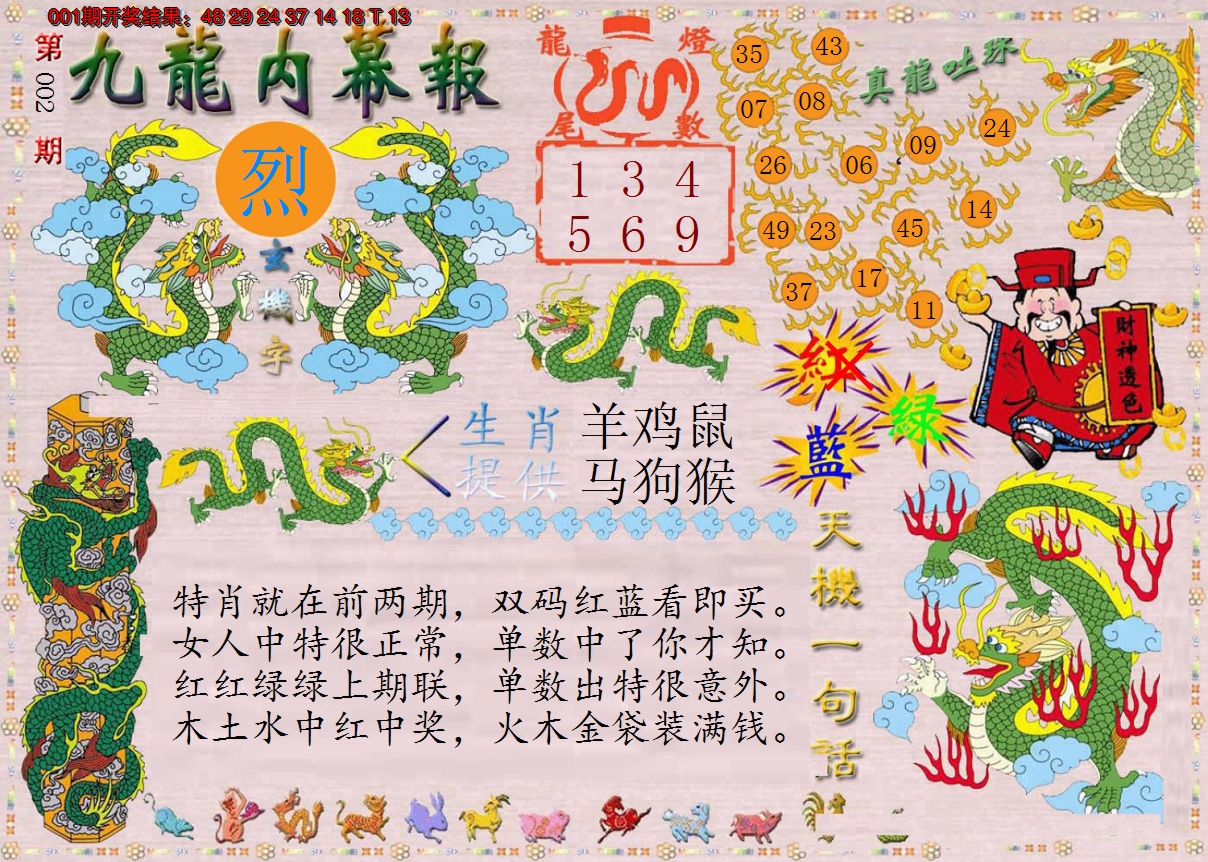 001期开奖结果：48 29 24 37 14 18 T 13
第002期
九龍内幕報
烈
玄機字
龍燈尾數
1 3 4
5 6 9
真龍吐珠
35 43
07 08
26 06 09 24
49 23 45 14
37 17 11
財神透色
紅
綠
藍
生肖提供
羊鸡鼠
马狗猴
天機一句话
特肖就在前两期，双码红蓝看即买。
女人中特很正常，单数中了你才知。
红红绿绿上期联，单数出特很意外。
木土水中红中奖，火木金袋装满钱。